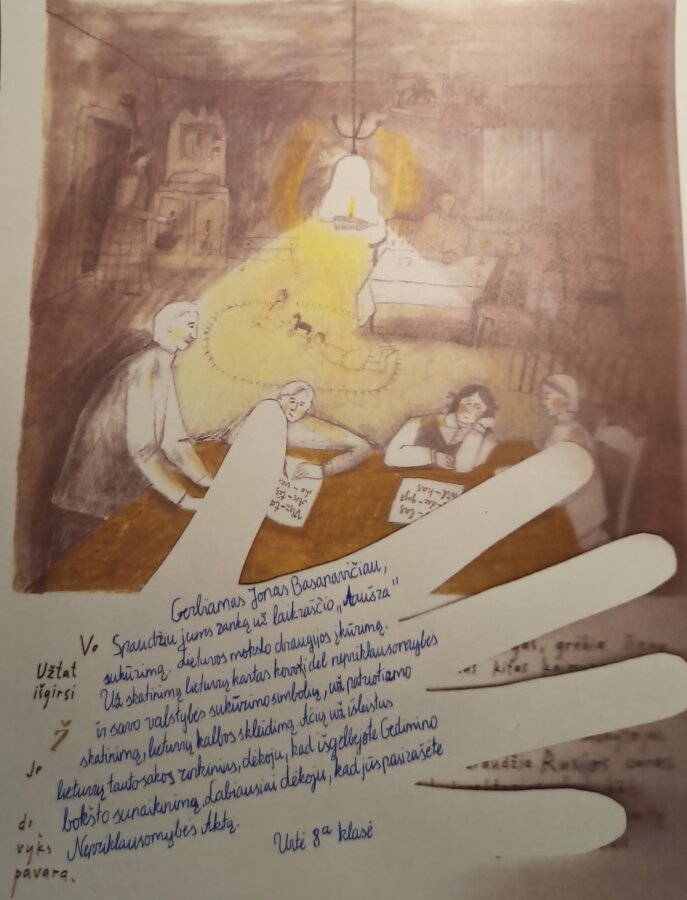 Višta
do-
-las
-du-gys
Vil-kas
Gerbiamas Jonas Basanavičiau,
Spaudžiu jums ranką už laikraščio „Aušra"
sukūrimą. Lietuvos mokslo draugijos įkūrimą.
Už skatinimą lietuvių kartas kovoti dėl nepriklausomybės
ir savo valstybės sukūrimo simbolių, už patriotiamo
skatinimą, lietuvių kalbos skleidimą. Ačiū už išleistus
lietuvių tautosakos rinkinius, dėkoju, kad išgelbėjote Gedimino
bokšto sunaikinimą. Labiausiai dėkoju, kad jūs pasirašėte
Nepriklausomybės Aktą.
Urtė 8ª klasė
Už tat
išgirsi
Je
di
vyks
pavara.
gas, grėbia
as kitas
Rusijos caras